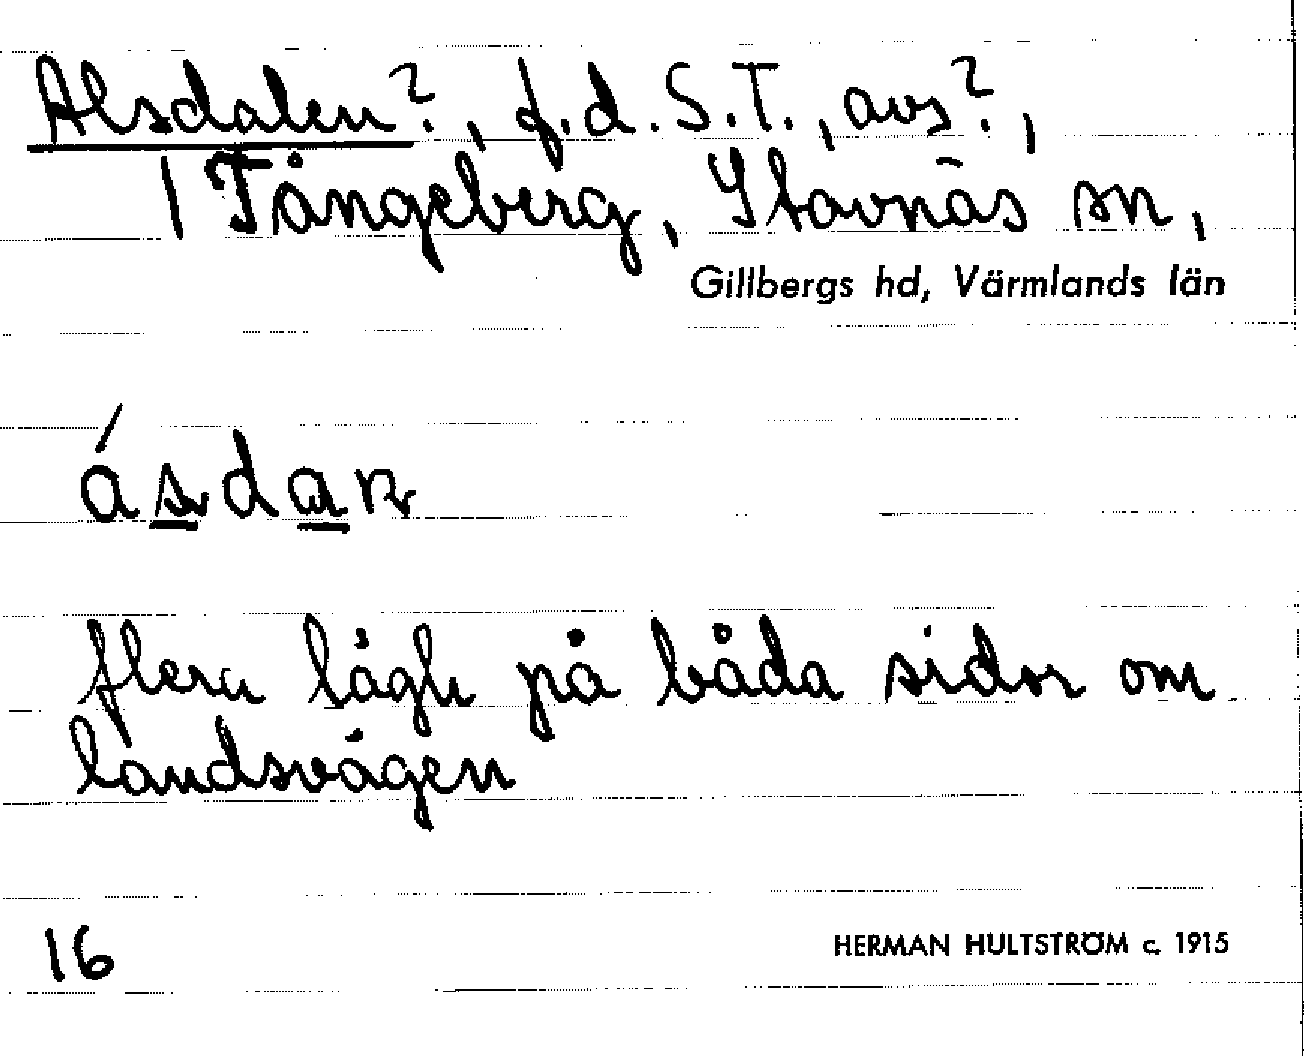 Alsdalen?, f.d. S.T., avs?,
/ Tångeberg, Stavnäs sn,
Gillbergs hd, Värmlands län
ásdan
flera lågh på båda sidor om
landsvägen
16 HERMAN HULTSTRÖM c. 1915